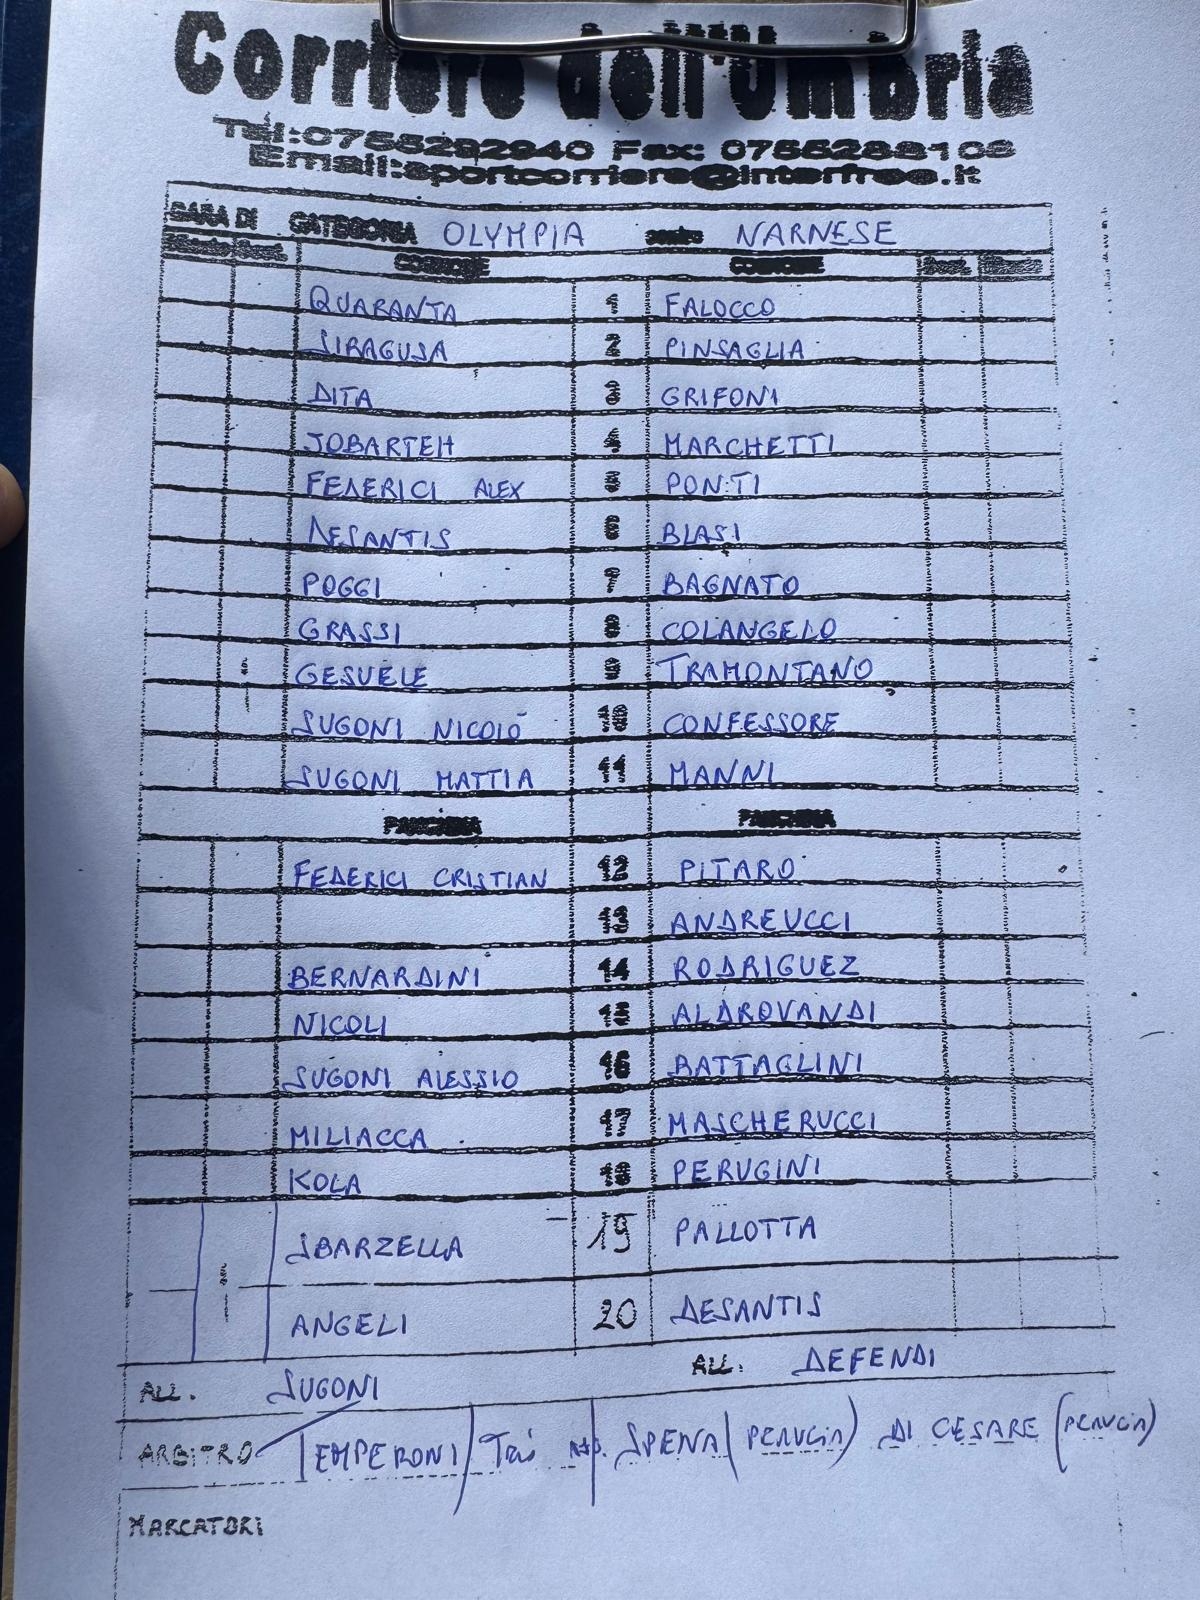 Corriere dell'Umbria
Tel:0755292940 Fax: 0755288109
Email:sportcorriere@interfree.it
GARA DI CATEGORIA OLYMPIA NARNESE
COGNOME COGNOME
QUARANTA 1 FALOCCO
SIRAGUSA 2 PINSAGLIA
DITA 3 GRIFONI
JOBARTEH 4 MARCHETTI
FEDERICI ALEX 5 PONTI
DESANTIS 6 BLASI
POGGI 7 BAGNATO
GRASSI 8 COLANGELO
GESUELE 9 TRAMONTANO
SUGONI NICOLÒ 10 CONFESSORE
SUGONI MATTIA 11 MANNI
PANCHINA PANCHINA
FEDERICI CRISTIAN 12 PITARO
13 ANDREUCCI
BERNARDINI 14 RODRIGUEZ
NICOLI 15 ALDROVANDI
SUGONI ALESSIO 16 BATTAGLINI
MILIACCA 17 MASCHERUCCI
KOLA 18 PERUGINI
SBARZELLA 19 PALLOTTA
ANGELI 20 DESANTIS
ALL. SUGONI ALL. DEFENDI
ARBITRO TEMPERONI SPENA (PERUGIA) DI CESARE (PERUGIA)
MARCATORI